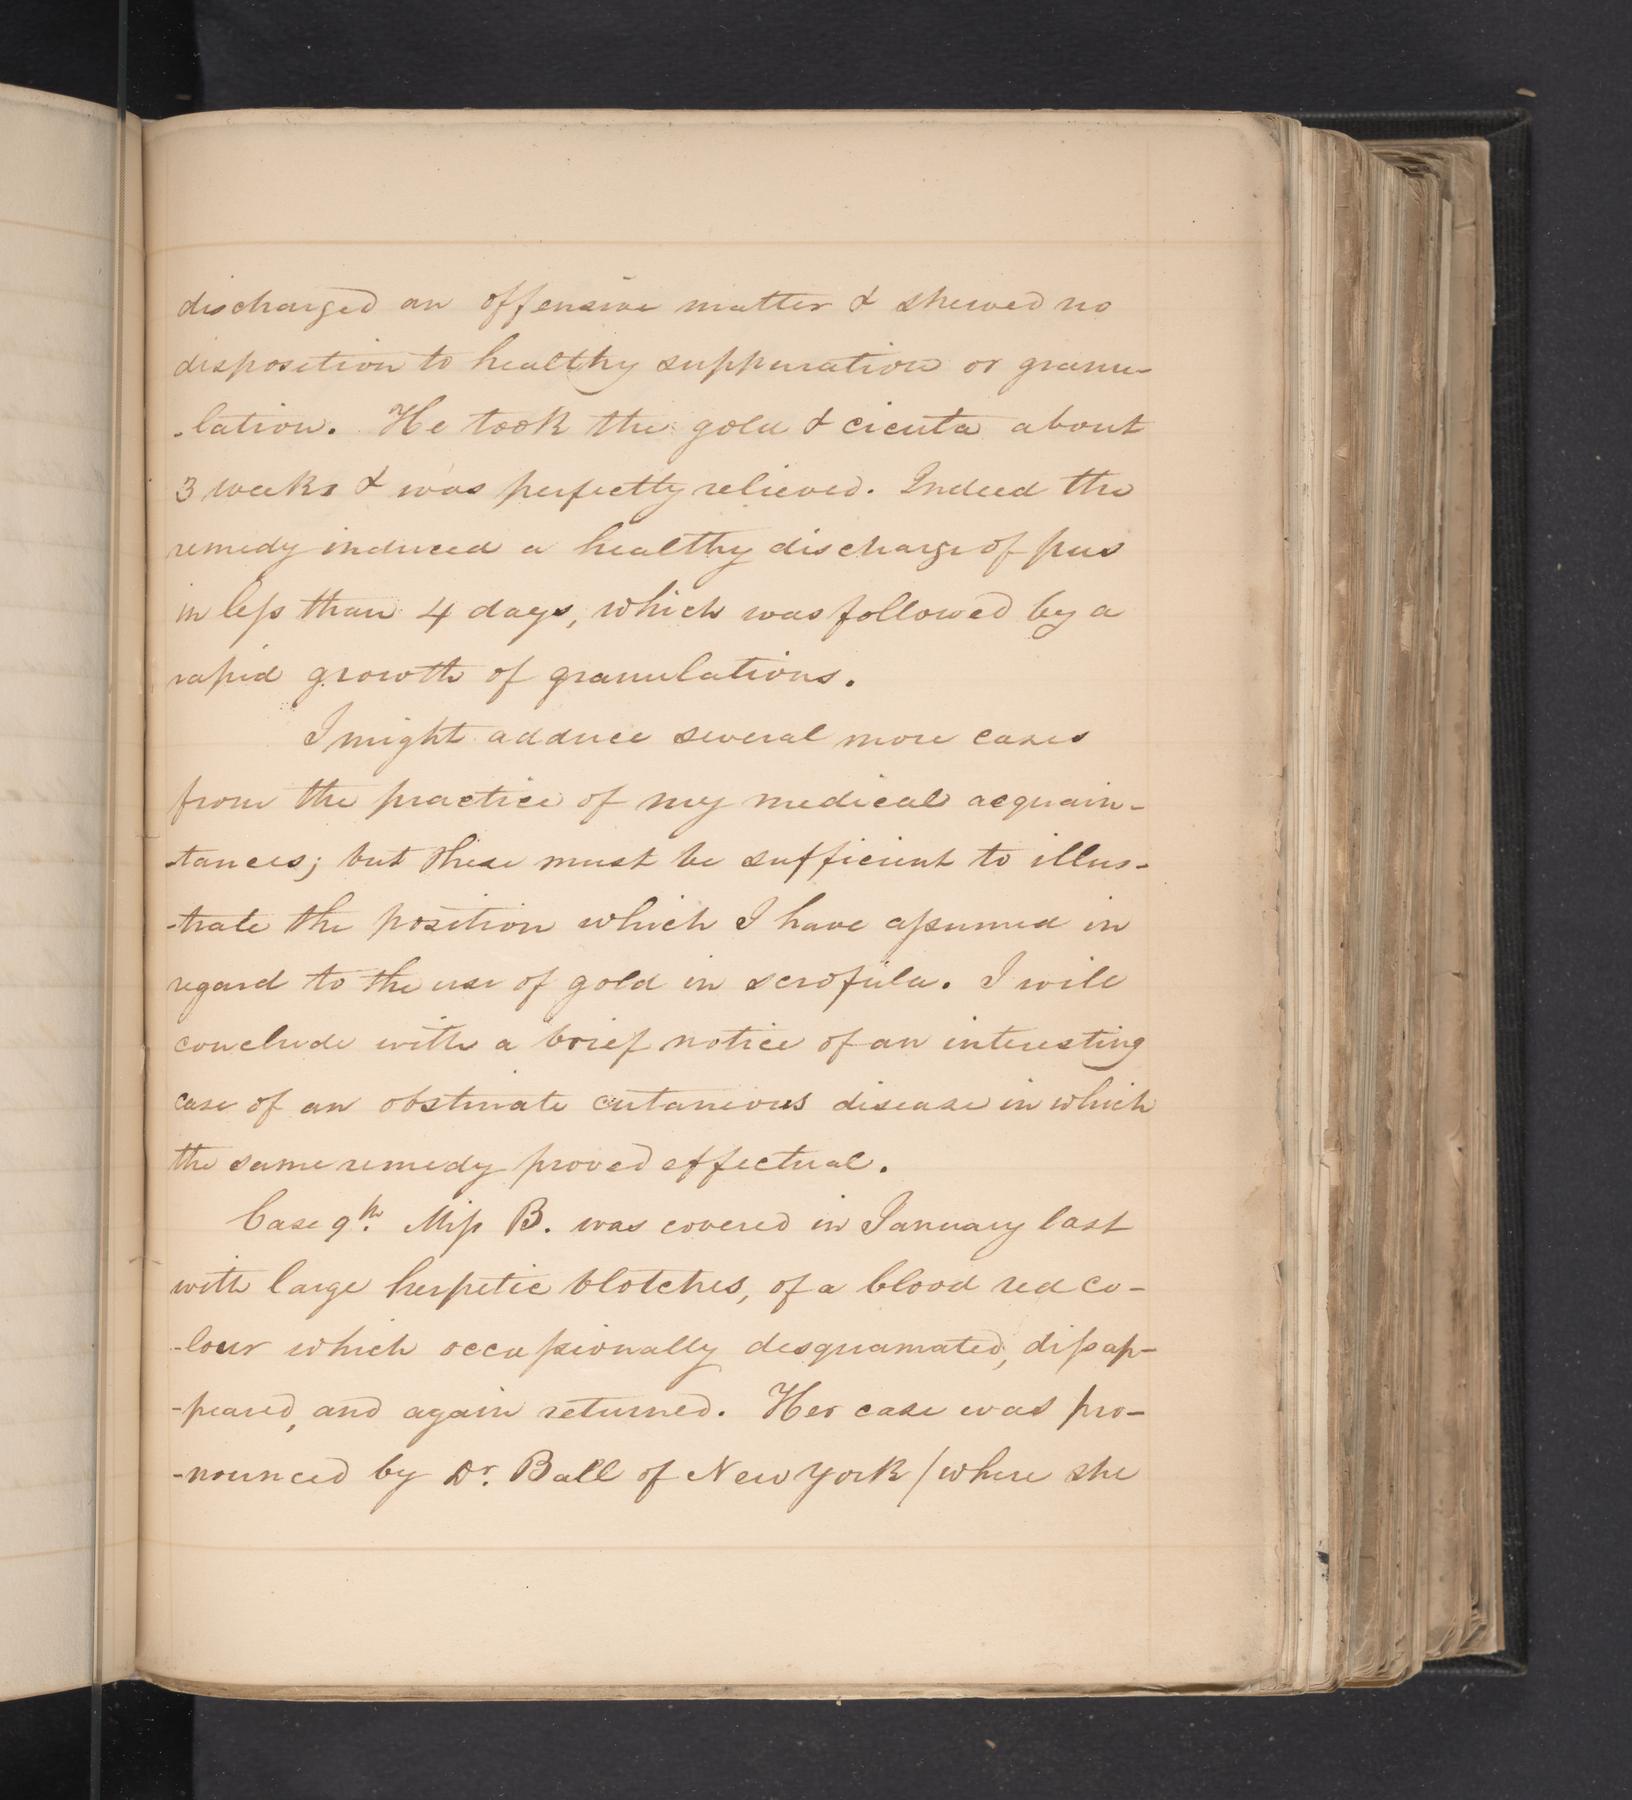 discharged an offensive matter & shewed no
disposition to healthy suppuration or granu-
-lation. He took the gold & cicuta about
3 weeks & was perfectly relieved. Indeed the
remedy induced a healthy discharge of pus
in less than 4 days, which was followed by a
rapid growth of granulations.
I might adduce several more cases
from the practice of my medical acquain-
-tances; but these must be sufficient to illus-
-trate the position which I have assumed in
regard to the use of gold in scrofula. I will
conclude with a brief notice of an interesting
case of an obstinate cutaneous disease in which
the same remedy proved effectual.
Case 9th. Miss B. was covered in January last
with large herpetic blotches, of a blood red co-
-lour which occassionally desquamated, dissap-
-peared, and again returned. Her case was pro-
-nounced by Dr. Ball of New York (where she